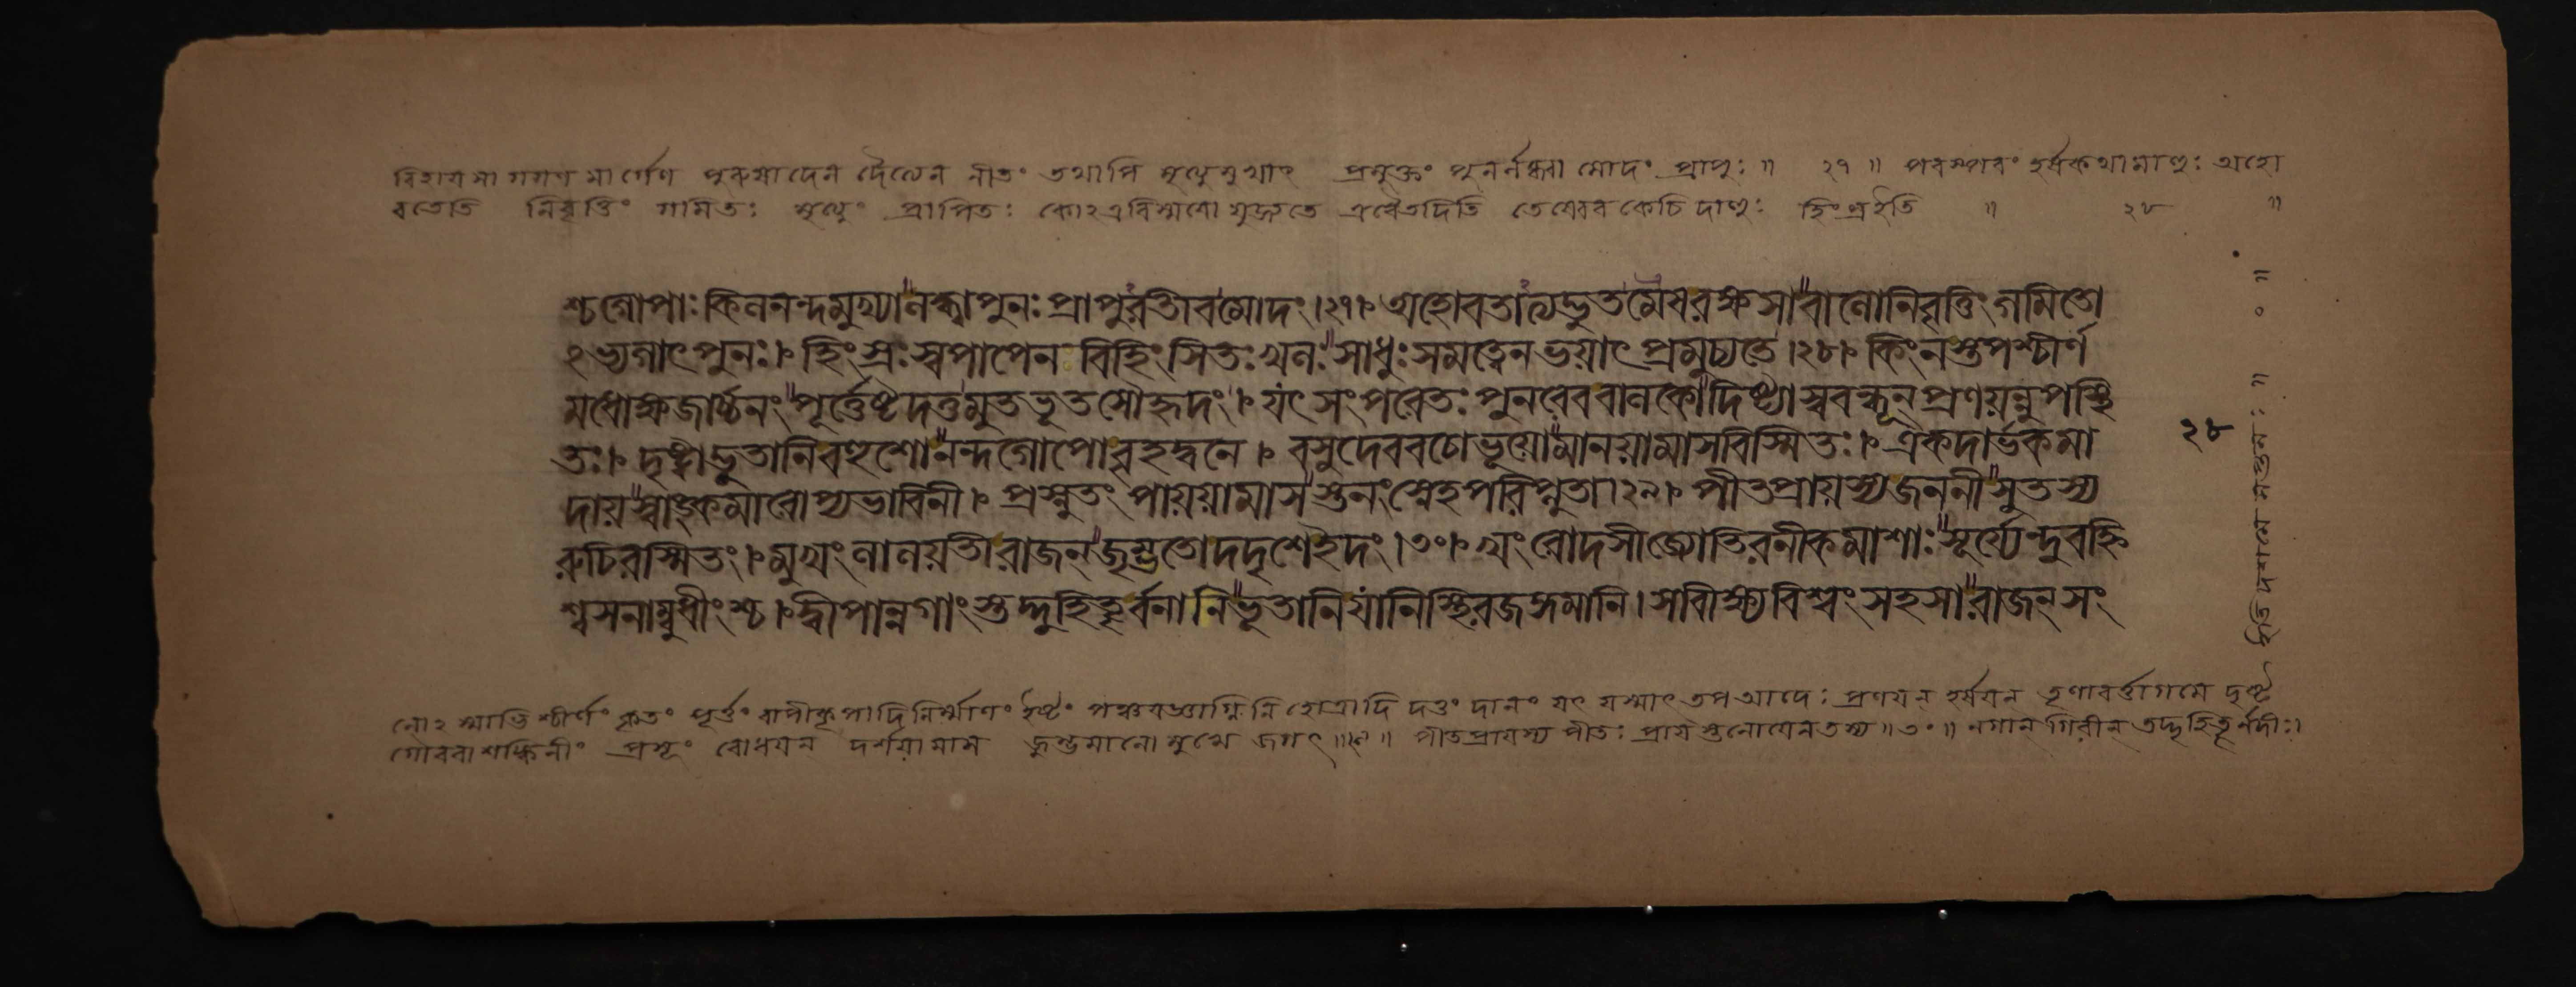 বিহায়সা গগণ মার্গেণ পুরুষাদেন দৈত্যেন নীতং তথাপি মৃত্যুমুখাৎ প্রমুক্তং পুনর্লব্ধ্বা মোদং প্রাপুঃ ॥ ২৭ ॥ পরস্পরং হর্ষকথামাহুঃ অহো
বতেতি নিবৃত্তিং গমিতঃ মৃত্যুং প্রাপিতঃ কোঽত্রবিস্ময়ো যুজ্যতে এবৈতদিতি তেষ্বেবকেচিদাহুঃ হিংস্রইতি ॥ ২৮ ॥
শ্চগোপাঃ কিলনন্দমুখ্যা॥লব্ধ্বাপুনঃ প্রাপুরতীবমোদং ।২৭। অহোবতাত্যদ্ভুতমেষরক্ষসা॥বালোনিবৃত্তিংগমিতো
ঽভ্যগাৎপুনঃ। হিংস্রঃস্বপাপেন বিহিংসিতঃখলঃ॥সাধুঃসমত্বেনভয়াৎপ্রমুচ্যতে ।২৮। কিংনস্তপশ্চীর্ণ
মধোক্ষজার্চ্চনং॥পূর্ত্তেষ্টদত্তমুতভূতসৌহৃদং । যৎসংপরেতঃপুনরেববালকো॥দিষ্ট্যাস্ববন্ধূন্প্রণয়ন্নুপস্থি
তঃ। দৃষ্ট্বাদ্ভুতানিবহুশো॥নন্দগোপোবৃহদ্বনে । বসুদেববচোভূয়ো॥মানয়ামাসবিস্মিতঃ। একদার্ভকমা
দায়॥স্বাঙ্কমারোপ্যভাবিনী। প্রস্নুতং পায়য়ামাস॥স্তনংস্নেহপরিপ্লুতা ।২৯। পীতপ্রায়স্যজননী॥সুতস্য
রুচিরস্মিতং। মুখংলালয়তীরাজন্॥জৃম্ভতোদদৃশেইদং ।৩০। খংরোদসীজ্যোতিরনীকমাশাঃ॥সূর্য্যেন্দুবহ্নি
শ্বসনাম্বুধীংশ্চ। দ্বীপান্নগাংস্তদ্দুহিতৄর্বনানি॥ভূতানিযানিস্থিরজঙ্গমানি। সাবীক্ষ্যবিশ্বংসহসা॥রাজন্সং
২৮
ইতি দশমে সপ্তমঃ ॥ ০ ॥
নোঽস্মাভিশ্চীর্ণং কৃতং পূর্ত্তং বাপীকূপাদিনির্ম্মাণং ইষ্টং পঞ্চযজ্ঞাগ্নিনিহোত্রাদি দত্তং দানং যৎ যস্মাৎ তপআদেঃ প্রণয়ন্ হর্ষয়ন্ তৃণাবর্ত্তাগমে দৃষ্ট
গৌরবাশঙ্কিনীং প্রসূং বোধয়ন্ দর্শয়ামাস জৃম্ভমানো মুখে জগৎ ॥২৯॥ পীতপ্রায়স্য পীতঃ প্রায় স্তনোযেনতস্য ॥৩০॥ নগান্ গিরীন্ তদ্দুহিতৄর্নদীঃ।